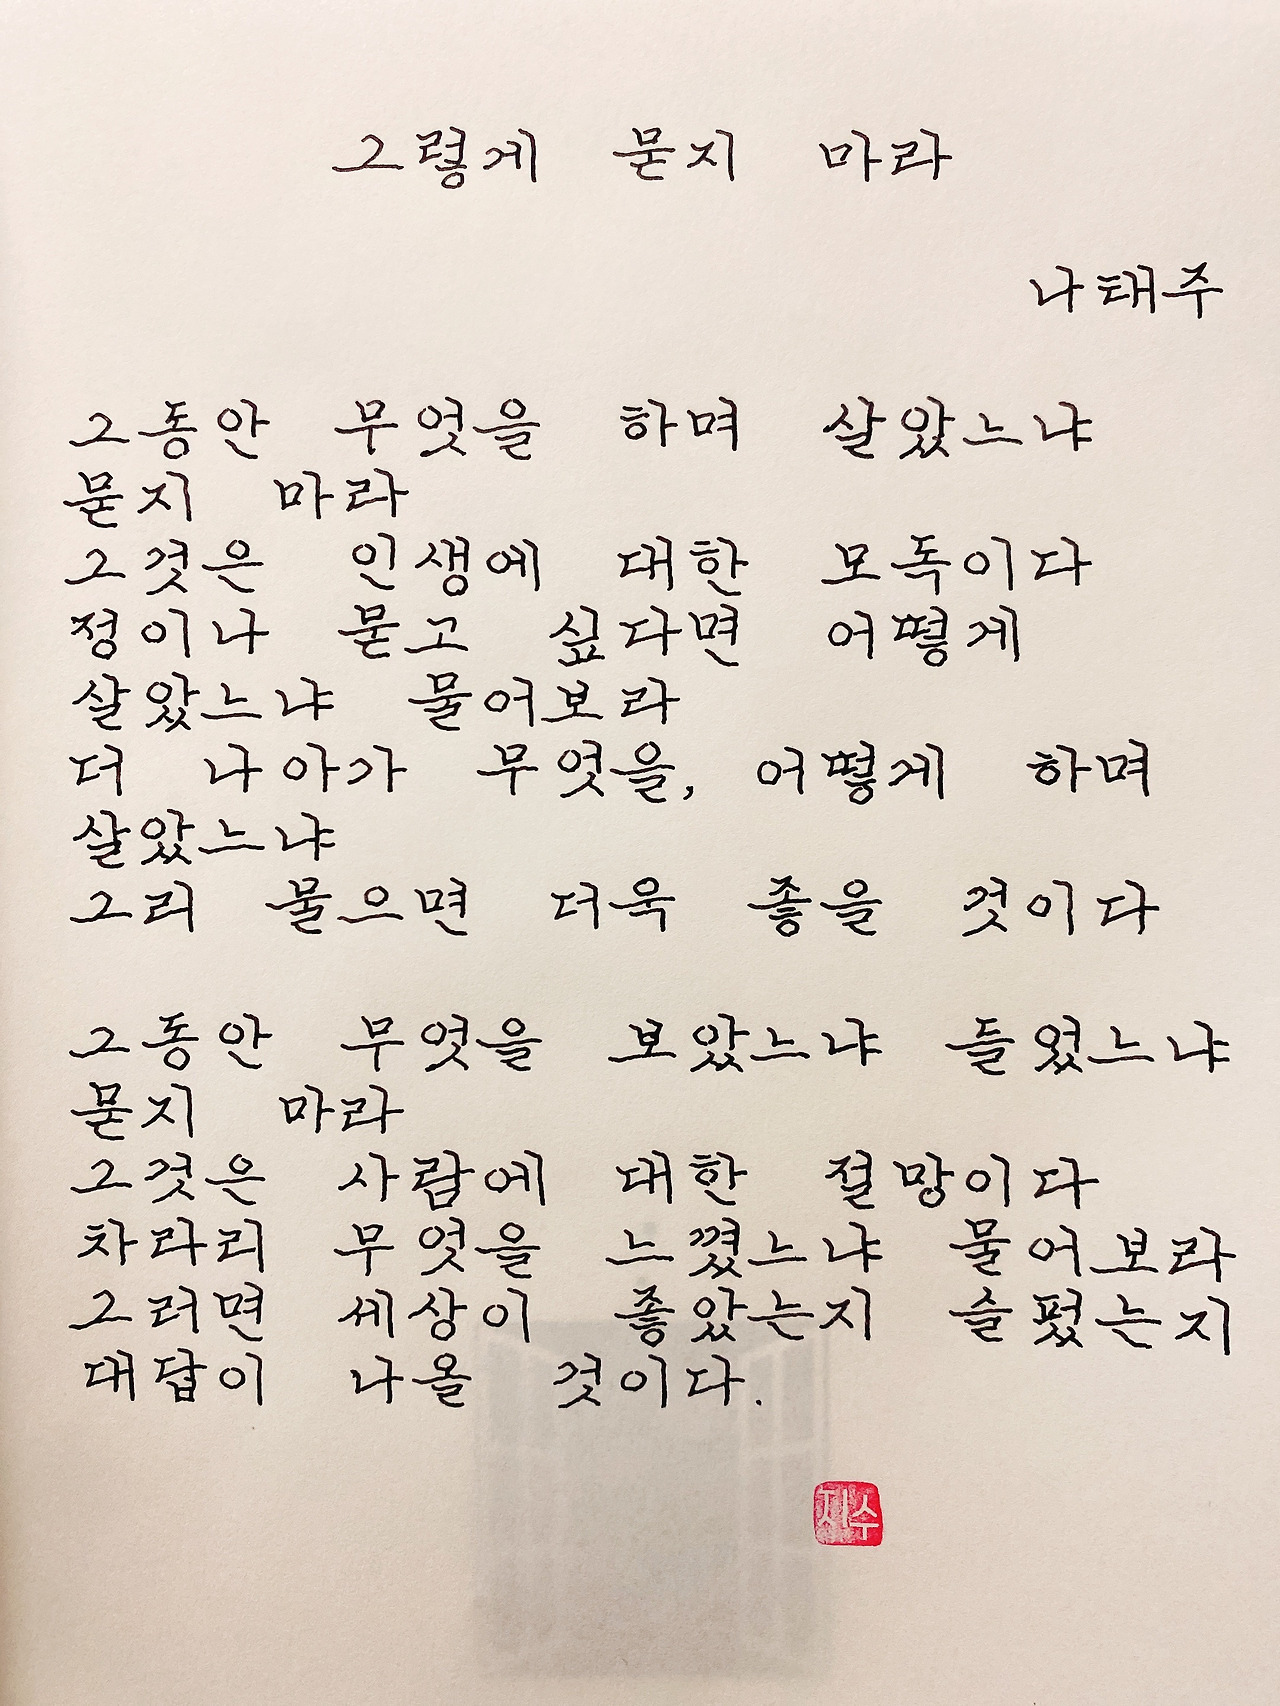 그렇게 묻지 마라
나태주
그동안 무엇을 하며 살았느냐
묻지 마라
그것은 인생에 대한 모독이다
정이나 묻고 싶다면 어떻게
살았느냐 물어보라
더 나아가 무엇을, 어떻게 하며
살았느냐
그리 물으면 더욱 좋을 것이다
그동안 무엇을 보았느냐 들었느냐
묻지 마라
그것은 사람에 대한 절망이다
차라리 무엇을 느꼈느냐 물어보라
그러면 세상이 좋았는지 슬펐는지
대답이 나올 것이다.
지수